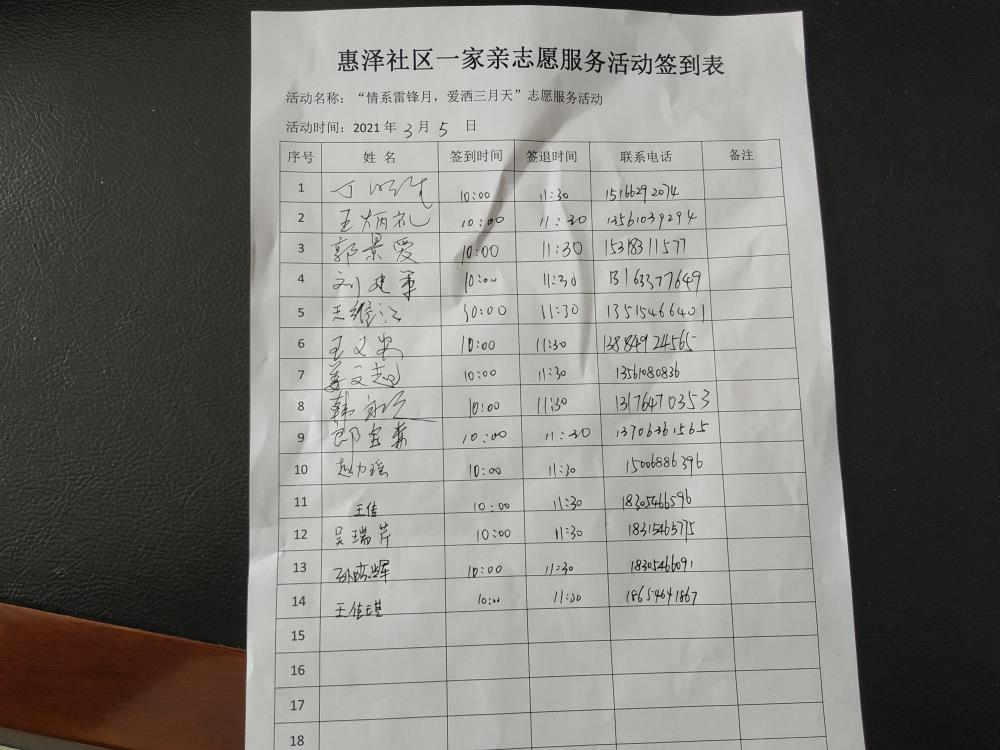 惠泽社区一家亲志愿服务活动签到表
活动名称：“情系雷锋月，爱洒三月天”志愿服务活动
活动时间：2021 年 3 月 5 日
序号 姓 名 签到时间 签退时间 联系电话 备注
1 丁 10:00 11:30 15166292074
2 王炳礼 10:00 11:30 13561039294
3 郭景爱 10:00 11:30 15318311577
4 刘建军 10:00 11:30 13163377649
5 王维江 10:00 11:30 13515466401
6 王文 10:00 11:30 13884924565
7 姜文起 10:00 11:30 13561080836
8 韩 10:00 11:30 13176470353
9 郎宝森 10:00 11:30 13706361565
10 赵力瑶 10:00 11:30 15006886396
11 王佳 10:00 11:30 18305466596
12 吴瑞芹 10:00 11:30 18315465775
13 孙晓辉 10:00 11:30 18305466091
14 王佳琪 10:00 11:30 18654641867
15
16
17
18